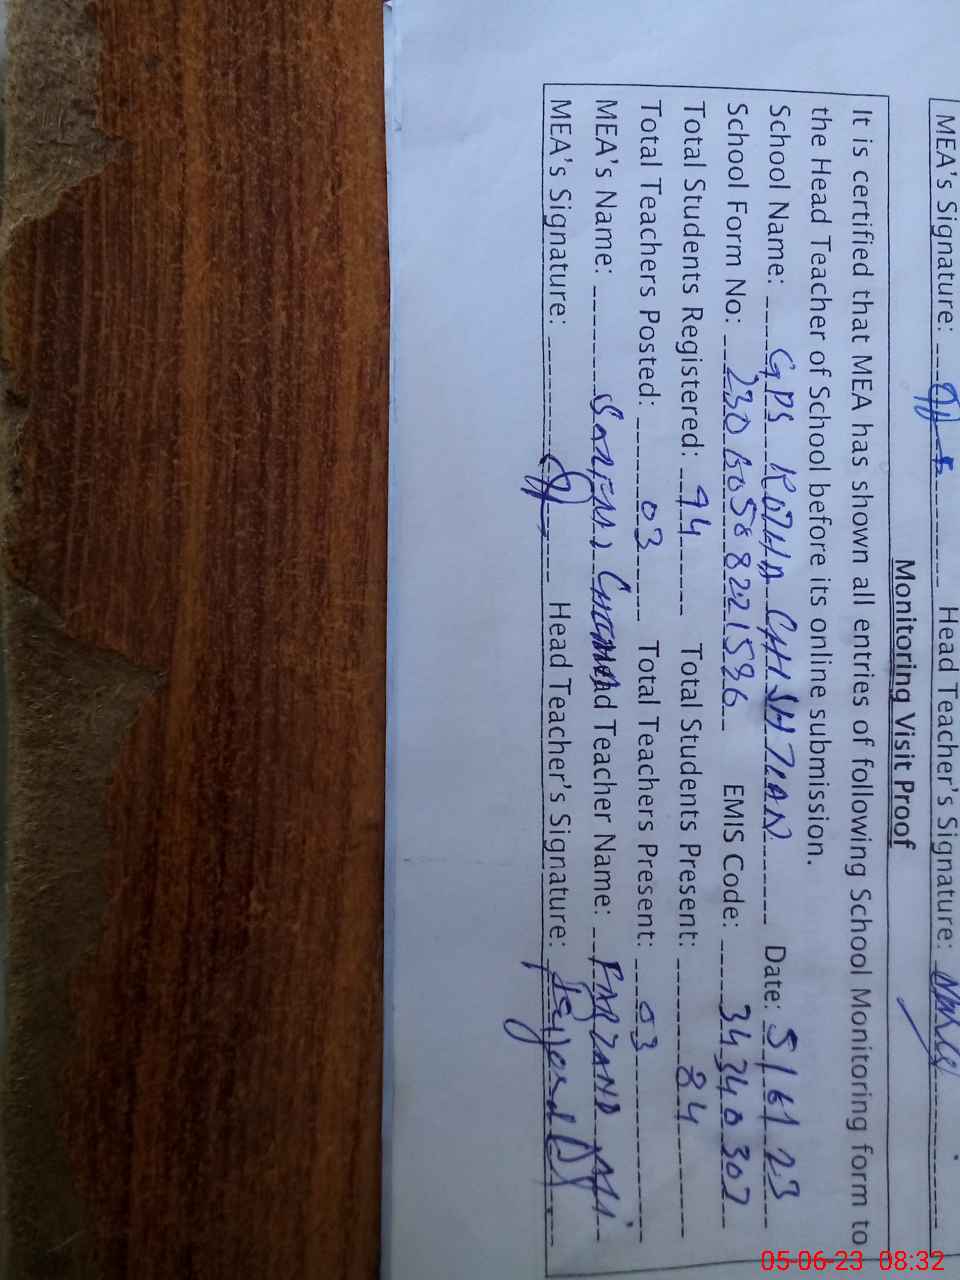 MEA's Signature: Head Teacher's Signature:
Monitoring Visit Proof
It is certified that MEA has shown all entries of following School Monitoring form to
the Head Teacher of School before its online submission.
School Name: GPS KOTHA CHISHTIAN Date: 5/6/23
School Form No: EMIS Code: 34340302
Total Students Registered: 94 Total Students Present: 84
Total Teachers Posted: 03 Total Teachers Present: 03
MEA's Name: Head Teacher Name: FARZAND Ali
MEA's Signature: Head Teacher's Signature:
05-06-23 08:32